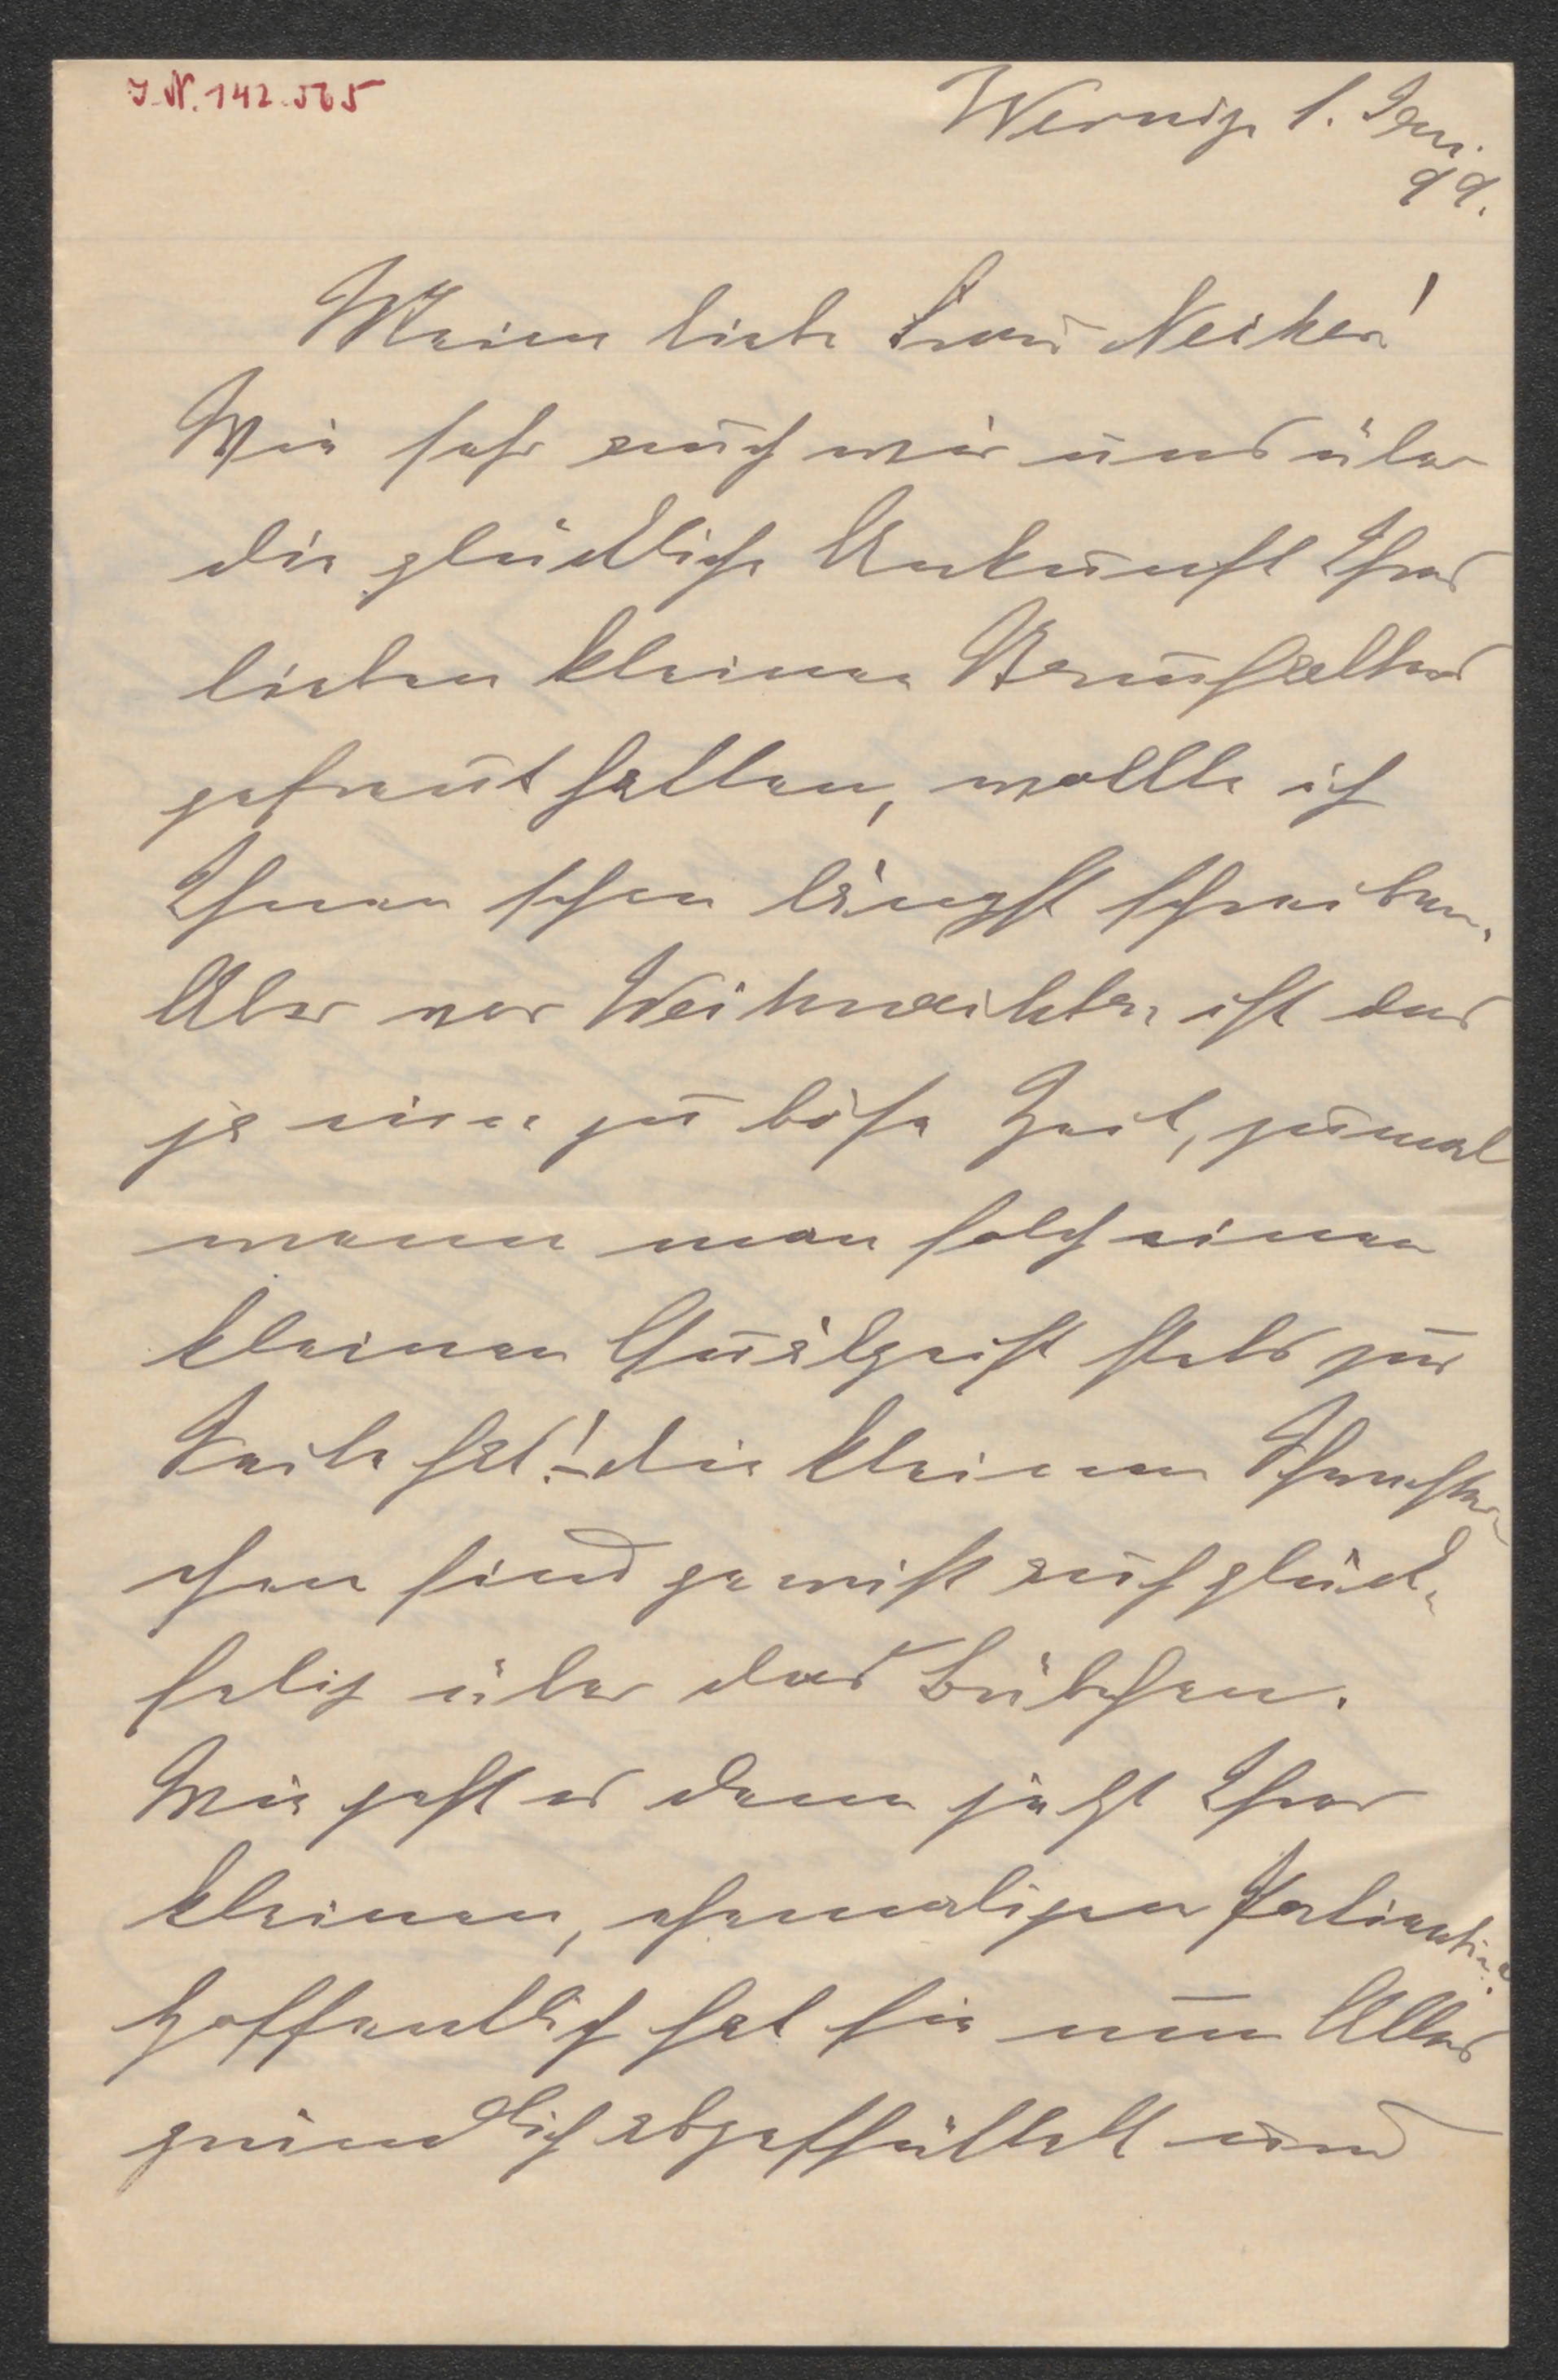 J.N. 142.565
Wernig. 1. Jan.
99.
Meine liebe Frau Necker!
Wie sehr auch wir uns über
die glückliche Ankunft Ihres
lieben kleinen
gefreut hatten, wollte ich
Ihnen schon längst schreiben.
Aber vor Weihnachten ist das
ja eine zu böse Zeit, zumal
wenn man solch einen
kleinen Quälgeist stets zur
Seite hat! – die kleinen Schwester
chen sind gewiß auch glück-
selig über das Bübchen.
Wie geht es denn jetzt Ihrer
kleinen, ehemaligen Patientin?
Hoffentlich hat sie nun Alles
gründlich abgeschüttelt und